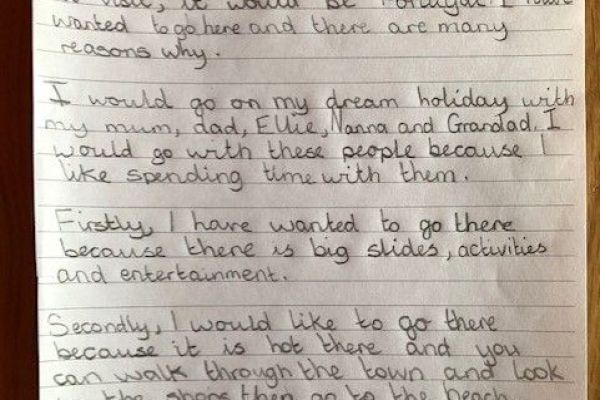 visit, it would be Portugal. I have
wanted to go here and there are many
reasons why.
I would go on my dream holiday with
my mum, dad, Ellie, Nanna and Grandad. I
would go with these people because I
like spending time with them.
Firstly, I have wanted to go there
because there is big slides, activities
and entertainment.
Secondly, I would like to go there
because it is hot there and you
can walk through the town and look
the shops then go to the beach